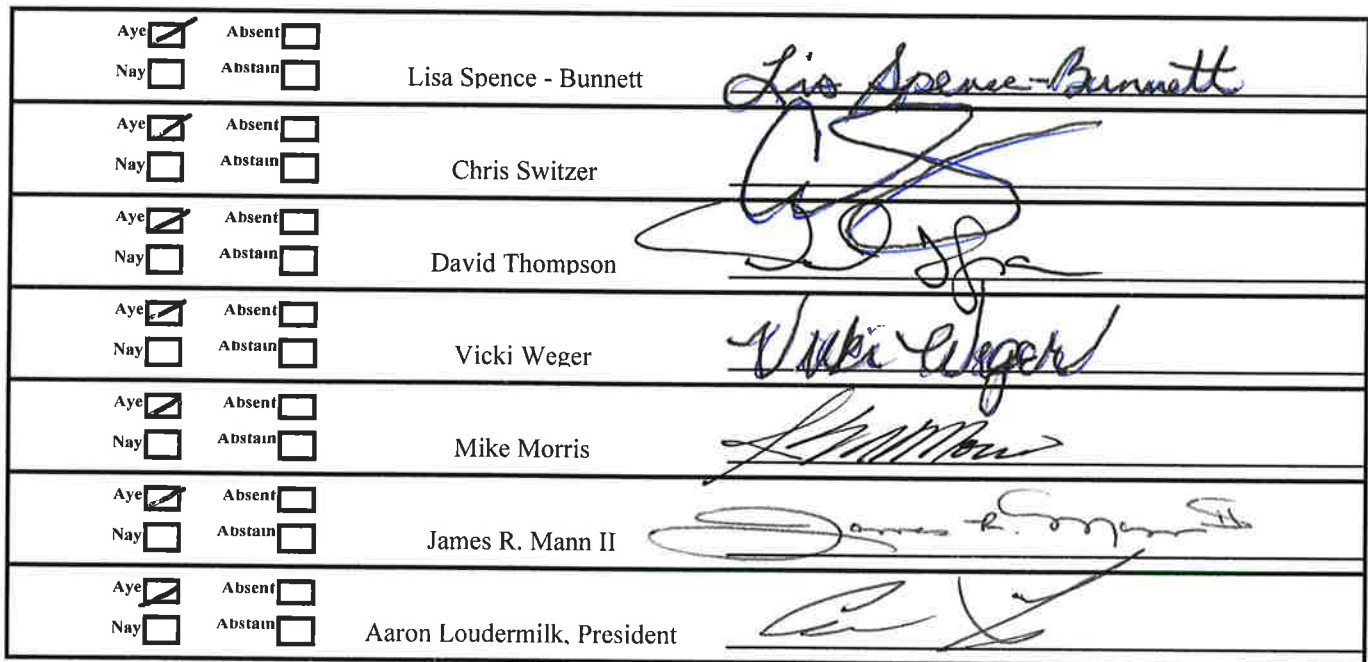 Aye Absent
Nay Abstain Lisa Spence - Bunnett Lisa Spence-Bunnett
Aye Absent
Nay Abstain Chris Switzer
Aye Absent
Nay Abstain David Thompson
Aye Absent
Nay Abstain Vicki Weger Vicki Weger
Aye Absent
Nay Abstain Mike Morris
Aye Absent
Nay Abstain James R. Mann II James R. Mann II
Aye Absent
Nay Abstain Aaron Loudermilk, President